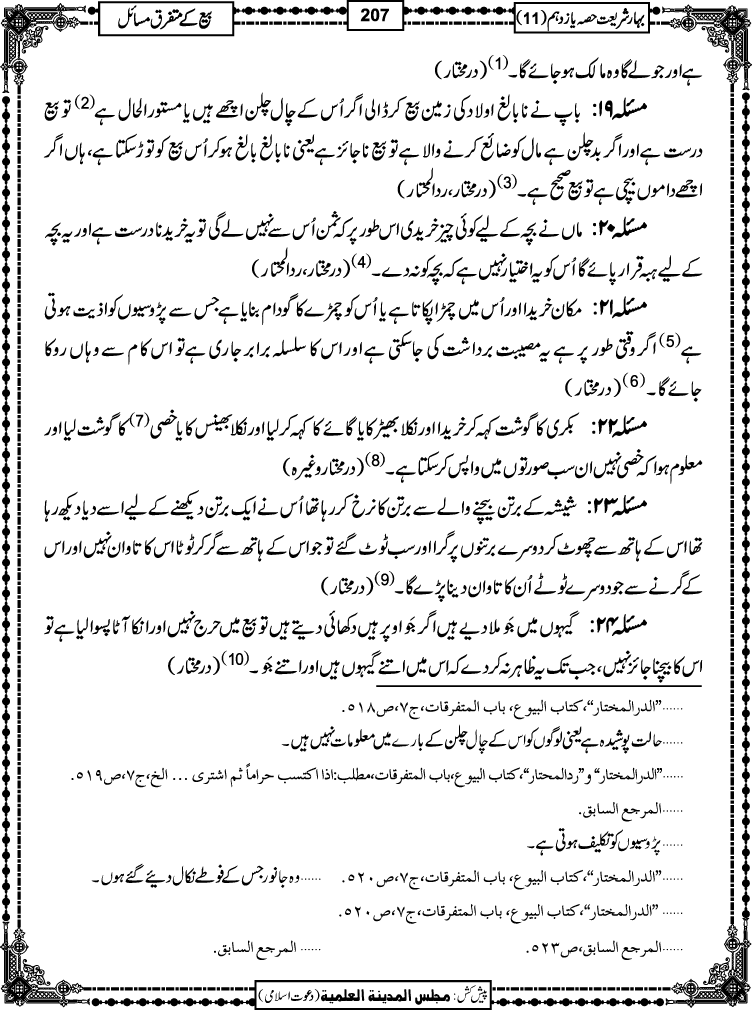 بہار شریعت حصہ یازدہم (11)
207
بیع کے متفرق مسائل
ہے اور جو لے گا وہ مالک ہو جائے گا۔(1) (درمختار)
مسئلہ ۱۹: باپ نے نابالغ اولاد کی زمین بیع کر ڈالی اگر اُس کے چال چلن اچھے ہیں یا مستور الحال ہے(2) تو بیع
درست ہے اور اگر بدچلن ہے مال کو ضائع کرنے والا ہے تو بیع ناجائز ہے یعنی نابالغ بالغ ہو کر اُس بیع کو توڑ سکتا ہے، ہاں اگر
اچھے داموں بیچی ہے تو بیع صحیح ہے۔(3) (درمختار، ردالمحتار)
مسئلہ ۲۰: ماں نے بچہ کے لیے کوئی چیز خریدی اس طور پر کہ ثمن اُس سے نہیں لے گی تو یہ خریدنا درست ہے اور یہ بچہ
کے لیے ہبہ قرار پائے گا اُس کو یہ اختیار نہیں ہے کہ بچہ کو نہ دے۔(4) (درمختار، ردالمحتار)
مسئلہ ۲۱: مکان خریدا اور اُس میں چمڑا پکاتا ہے یا اُس کو چمڑے کا گودام بنایا ہے جس سے پڑوسیوں کو اذیت ہوتی
ہے(5) اگر وقتی طور پر ہے یہ مصیبت برداشت کی جاسکتی ہے اور اس کا سلسلہ برابر جاری ہے تو اس کام سے وہاں روکا
جائے گا۔(6) (درمختار)
مسئلہ ۲۲: بکری کا گوشت کہہ کر خریدا اور نکلا بھیڑ کا یا گائے کا کہہ کر لیا اور نکلا بھینس کا یا خصی(7) کا گوشت لیا اور
معلوم ہوا کہ خصی نہیں ان سب صورتوں میں واپس کر سکتا ہے۔(8) (درمختار وغیرہ)
مسئلہ ۲۳: شیشہ کے برتن بیچنے والے سے برتن کا نرخ کر رہا تھا اُس نے ایک برتن دیکھنے کے لیے اسے دیا دیکھ رہا
تھا اس کے ہاتھ سے چھوٹ کر دوسرے برتنوں پر گرا اور سب ٹوٹ گئے تو جو اس کے ہاتھ سے گر کر ٹوٹا اس کا تاوان نہیں اور اس
کے گرنے سے جو دوسرے ٹوٹے اُن کا تاوان دینا پڑے گا۔(9) (درمختار)
مسئلہ ۲۴: گیہوں میں جَو ملا دیے ہیں اگر جَو اوپر ہیں دکھائی دیتے ہیں تو بیع میں حرج نہیں اور انکا آٹا پسوا لیا ہے تو
اس کا بیچنا جائز نہیں، جب تک یہ ظاہر نہ کر دے کہ اس میں اتنے گیہوں ہیں اور اتنے جَو۔(10) (درمختار)
......”الدرالمختار“،کتاب البیوع، باب المتفرقات،ج٧،ص٥١٨.
......حالت پوشیدہ ہے یعنی لوگوں کو اس کے چال چلن کے بارے میں معلومات نہیں ہیں۔
......”الدرالمختار“ و”ردالمحتار“،کتاب البیوع،باب المتفرقات،مطلب:اذا اکتسب حراماً ثم اشتری ... الخ،ج٧،ص٥١٩.
......المرجع السابق.
......پڑوسیوں کو تکلیف ہوتی ہے۔
......”الدرالمختار“،کتاب البیوع، باب المتفرقات،ج٧،ص٥٢٠. ......وہ جانور جس کے فوطے نکال دیئے گئے ہوں۔
......”الدرالمختار“،کتاب البیوع، باب المتفرقات،ج٧،ص٥٢٠.
......المرجع السابق،ص٥٢٣. ......المرجع السابق.
پیش کش: مجلس المدینة العلمیة (دعوت اسلامی)